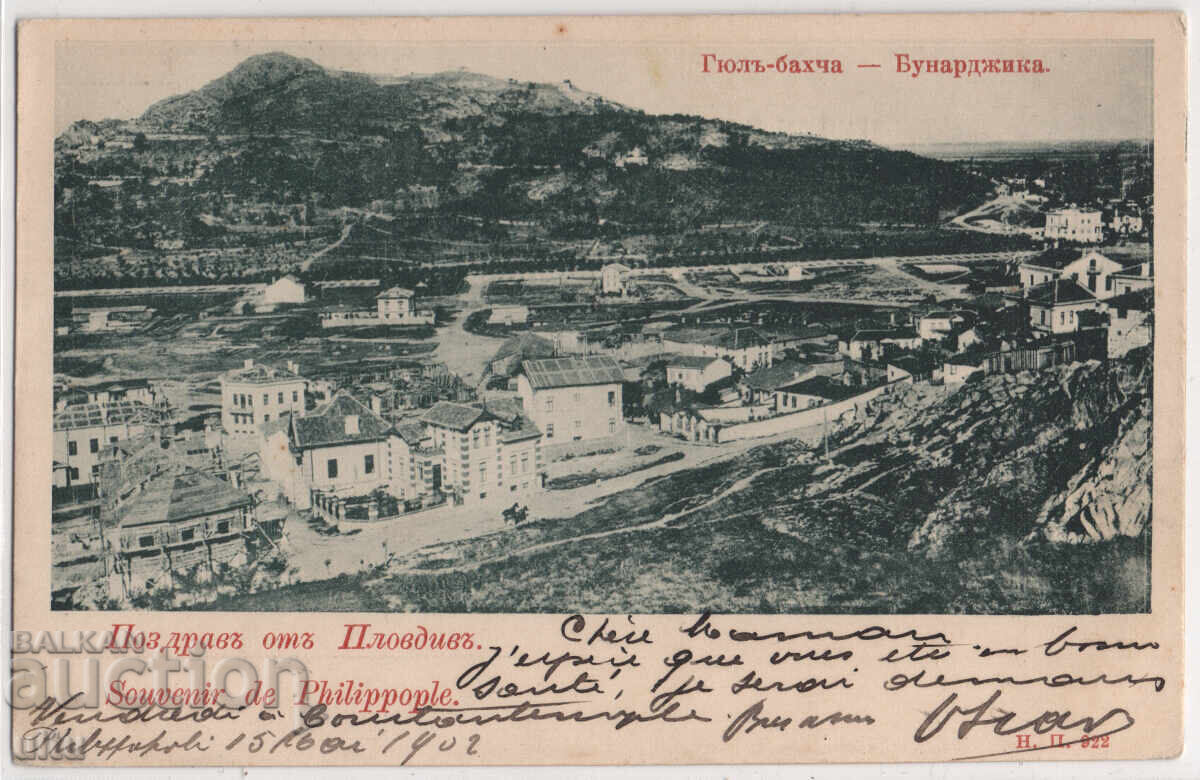 Гюлъ-бахча — Бунарджика.
Поздравъ отъ Пловдивъ.
Souvenir de Philippople.
Chère Maman
J'espère que vous ete en bonne
santé, je serai demains
Vendredi à Constantinople
15 Mai 1902
Н. П. 922
BALKAN
auction